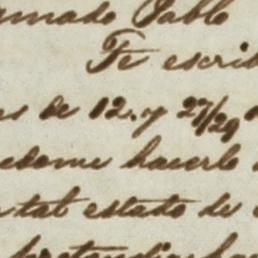 amado Pablo
Te escrib
s de 12. y 27/29
edome hacerlo
tal estado de
pretendia ha